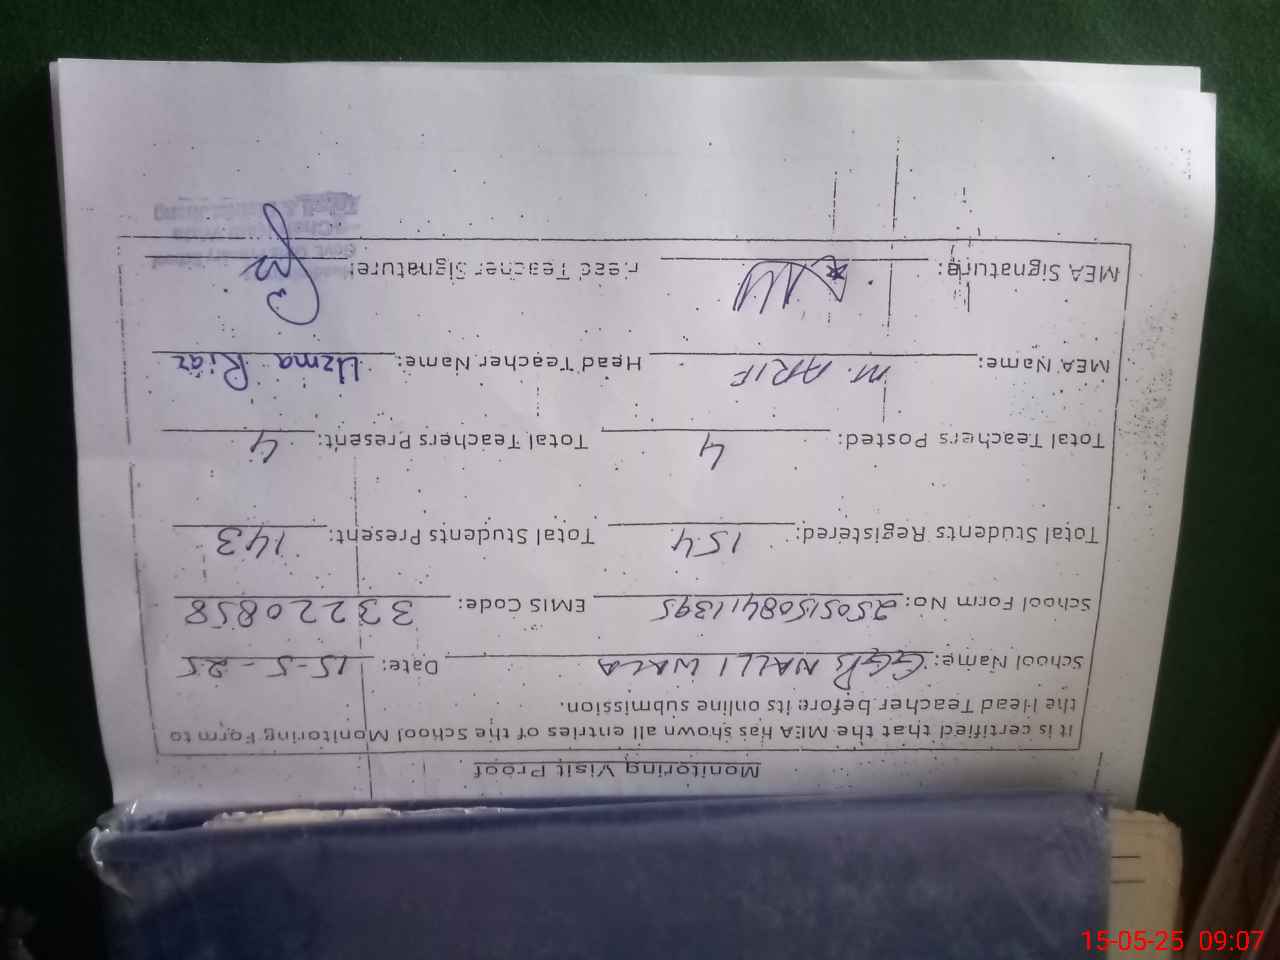 Monitoring Visit Proof
It is certified that the MEA has shown all entries of the School Monitoring Form to
the Head Teacher before its online submission.
School Name: GGPS NALLI WALA Date: 15-5-25
School Form No: 25051508411395 EMIS Code: 33220858
Total Students Registered: 154 Total Students Present: 143
Total Teachers Posted: 4 Total Teachers Present: 4
MEA Name: M. ARIF Head Teacher Name: Uzma Riaz
MEA Signature: Head Teacher Signature:
15-05-25 09:07